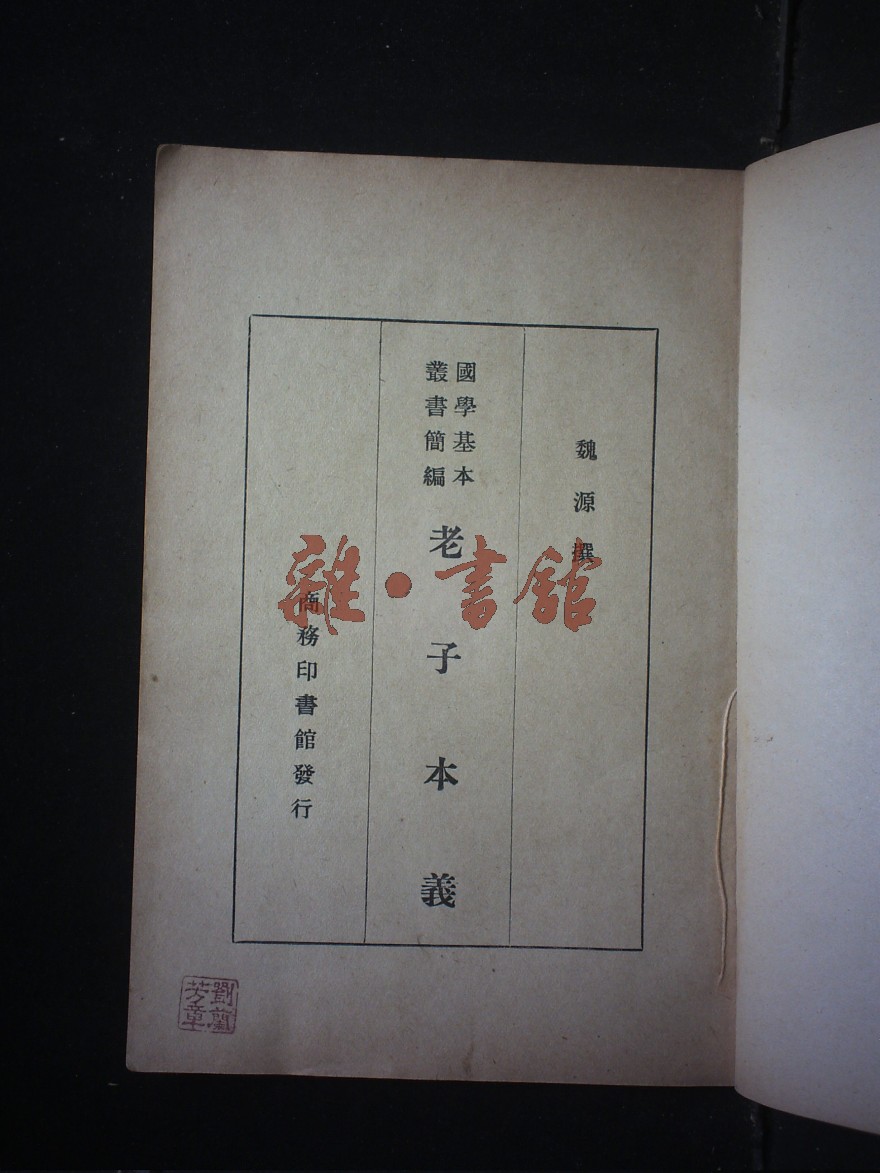 魏源撰
國學基本
叢書簡編
老子本義
商務印書館發行
雜·書館
劉蘭
芳章